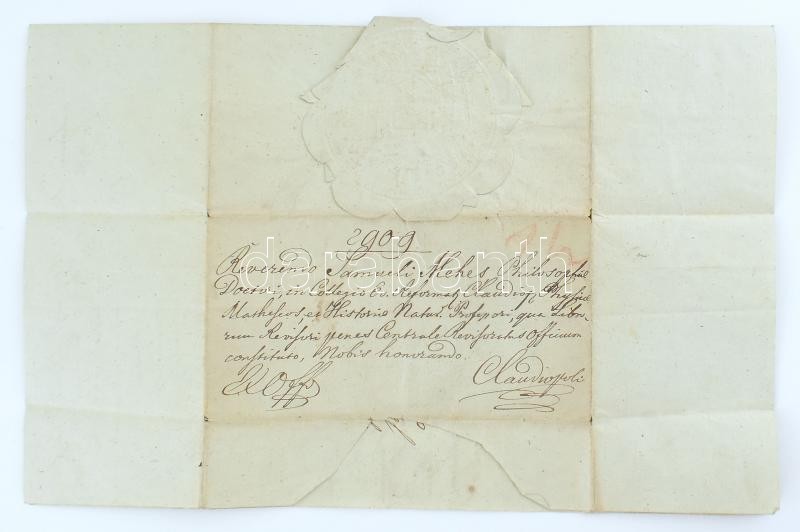 2909
Reverendo Samueli Mehes Philosophiae
Doctori, in Collegio Ev. Reformat. Claudiop. Physicae
Matheseos, et Historiae Natur. Professori, qua Libro-
rum Revisori penes Centrale Revisoratus Officium
constituto, Nobis honorando.
Ex Offo
Claudiopoli
darabanth